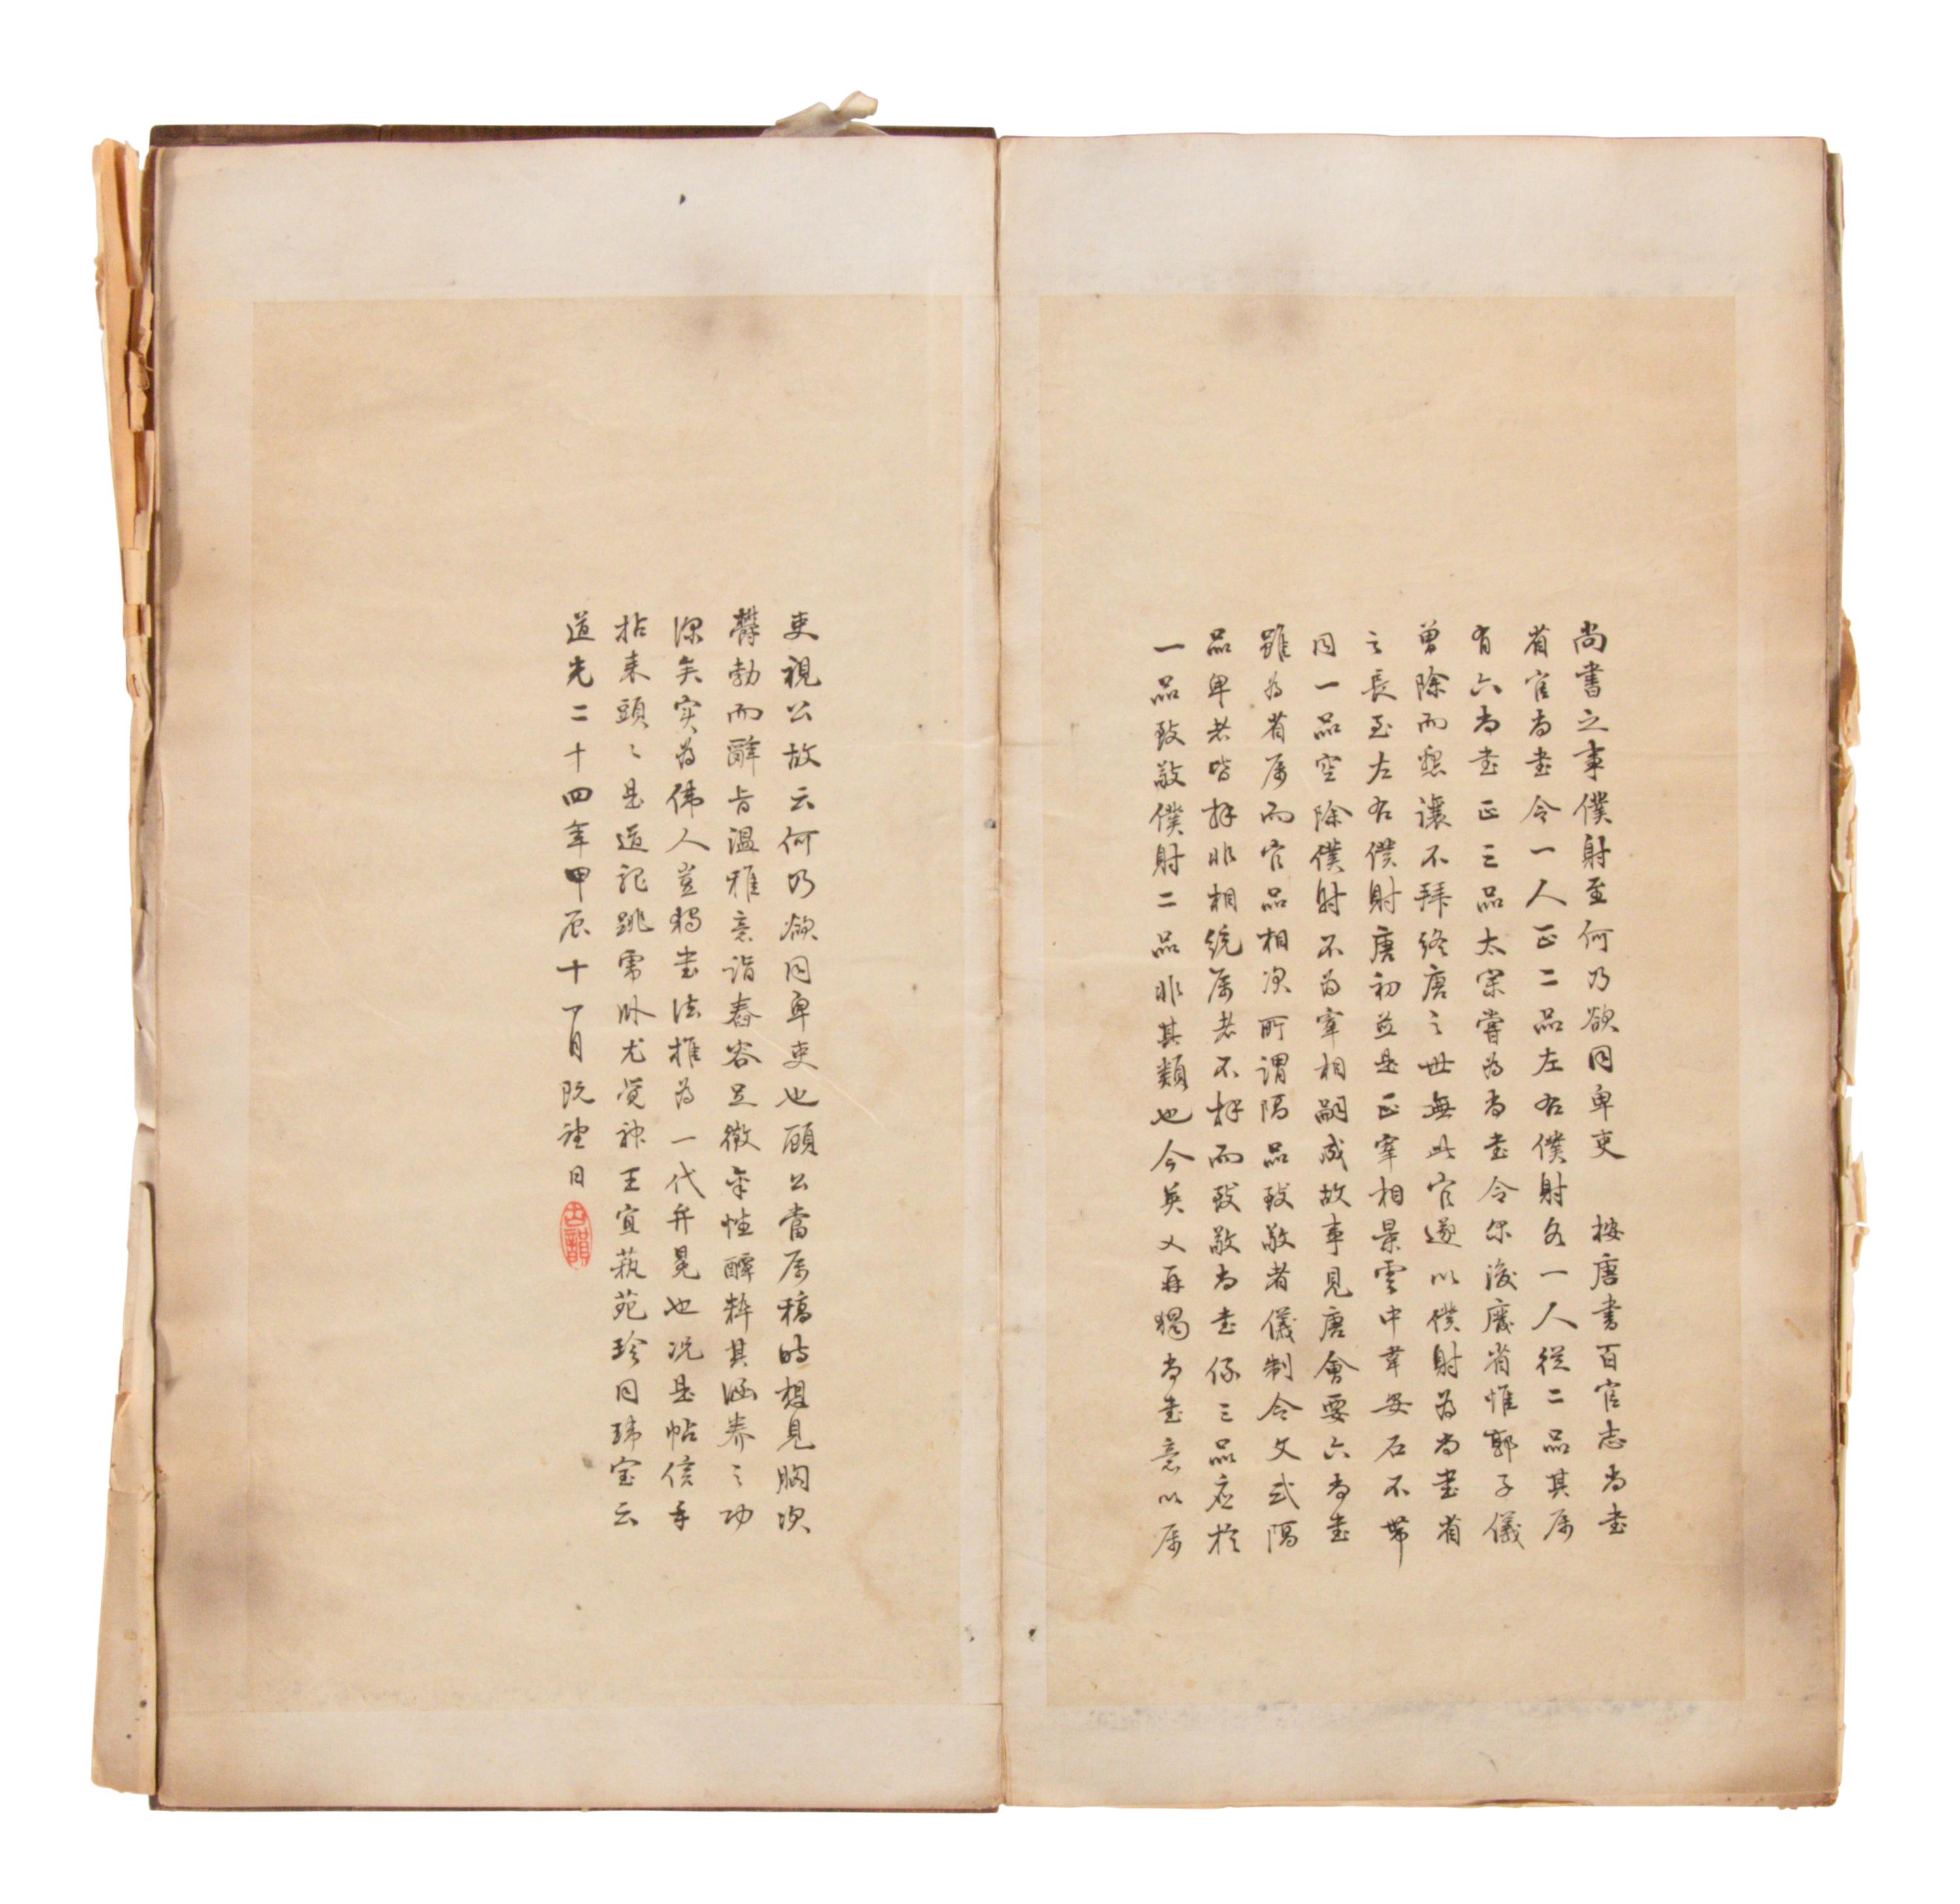 尚書之事僕射至何乃欲同卑吏　按唐書百官志尚書
省官尚書令一人正二品左右僕射各一人從二品其屬
有六尚書正三品太宗嘗為尚書令尔後廢省惟郭子儀
曾除而懇讓不拜終唐之世無此官遂以僕射為尚書省
之長至左右僕射唐初並是正宰相景雲中韋安石不帶
同一品空除僕射不為宰相嗣成故事見唐會要六尚書
雖為省属而官品相次所謂隔品致敬者儀制令文式隔
品卑者皆拜非相統属者不拜而致敬尚書係三品应於
一品致敬僕射二品非其類也今英乂再獨尚書意以属
吏視公故云何乃欲同卑吏也顾公當属稿時想見胸次
欎勃而辭旨温雅意詣春容足徵年性醇粹其涵养之功
深矣实為偉人豈獨書法推為一代弁冕也况是帖信手
拈来頭〻是道龍跳虎卧尤覚神王宜蓺苑珍同琫宝云
道光二十四年甲辰十一月既望日